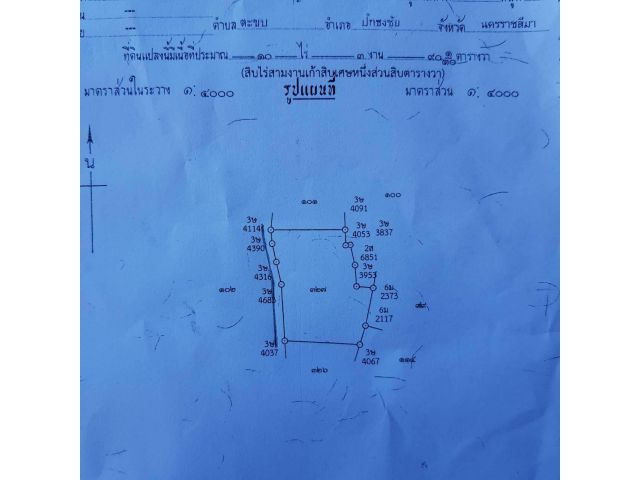 ตำบล ตะขบ อำเภอ ปักธงชัย จังหวัด นครราชสีมา
ที่ดินแปลงนี้มีเนื้อที่ประมาณ ๑๐ ไร่ ๓ งาน ๙๐ ๑/๑๐ ตารางวา
(สิบไร่สามงานเก้าสิบเศษหนึ่งส่วนสิบตารางวา)
มาตราส่วนในระวาง ๑: ๔๐๐๐ รูปแผนที่ มาตราส่วน ๑: ๔๐๐๐
น
๑๐๑
3ษ
4091
๑๐๐
3ษ
4114
3ษ
4053
3ษ
3837
3ษ
4390
2ส
6851
3ษ
4316
3ษ
3953
3ษ
4683
๑๐๒
๓๒๗
6ม
2373
6ม
2117
3ษ
4037
3ษ
4067
๑๑๔
๓๒๖